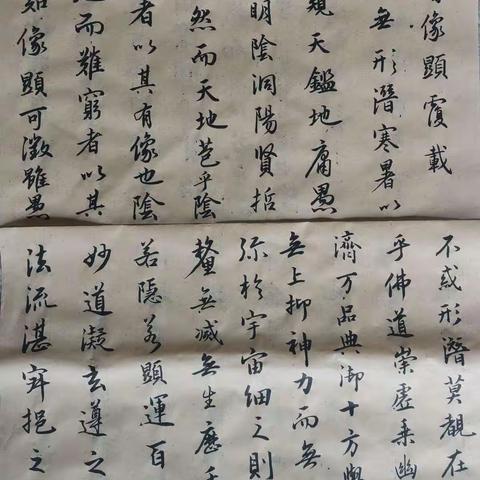 像顯覆載
無形潛寒暑以
窺天鑑地庸愚
明陰洞陽賢哲
然而天地苞乎陰
者以其有像也陰
而難窮者以其
知像顯可徵雖愚
不惑形潛莫覩在
乎佛道崇虛乘幽
濟万品典御十方舉
無上抑神力而無
弥於宇宙細之則
釐無滅無生歷千
若隱若顯運百
妙道凝玄遵之
法流湛寂挹之